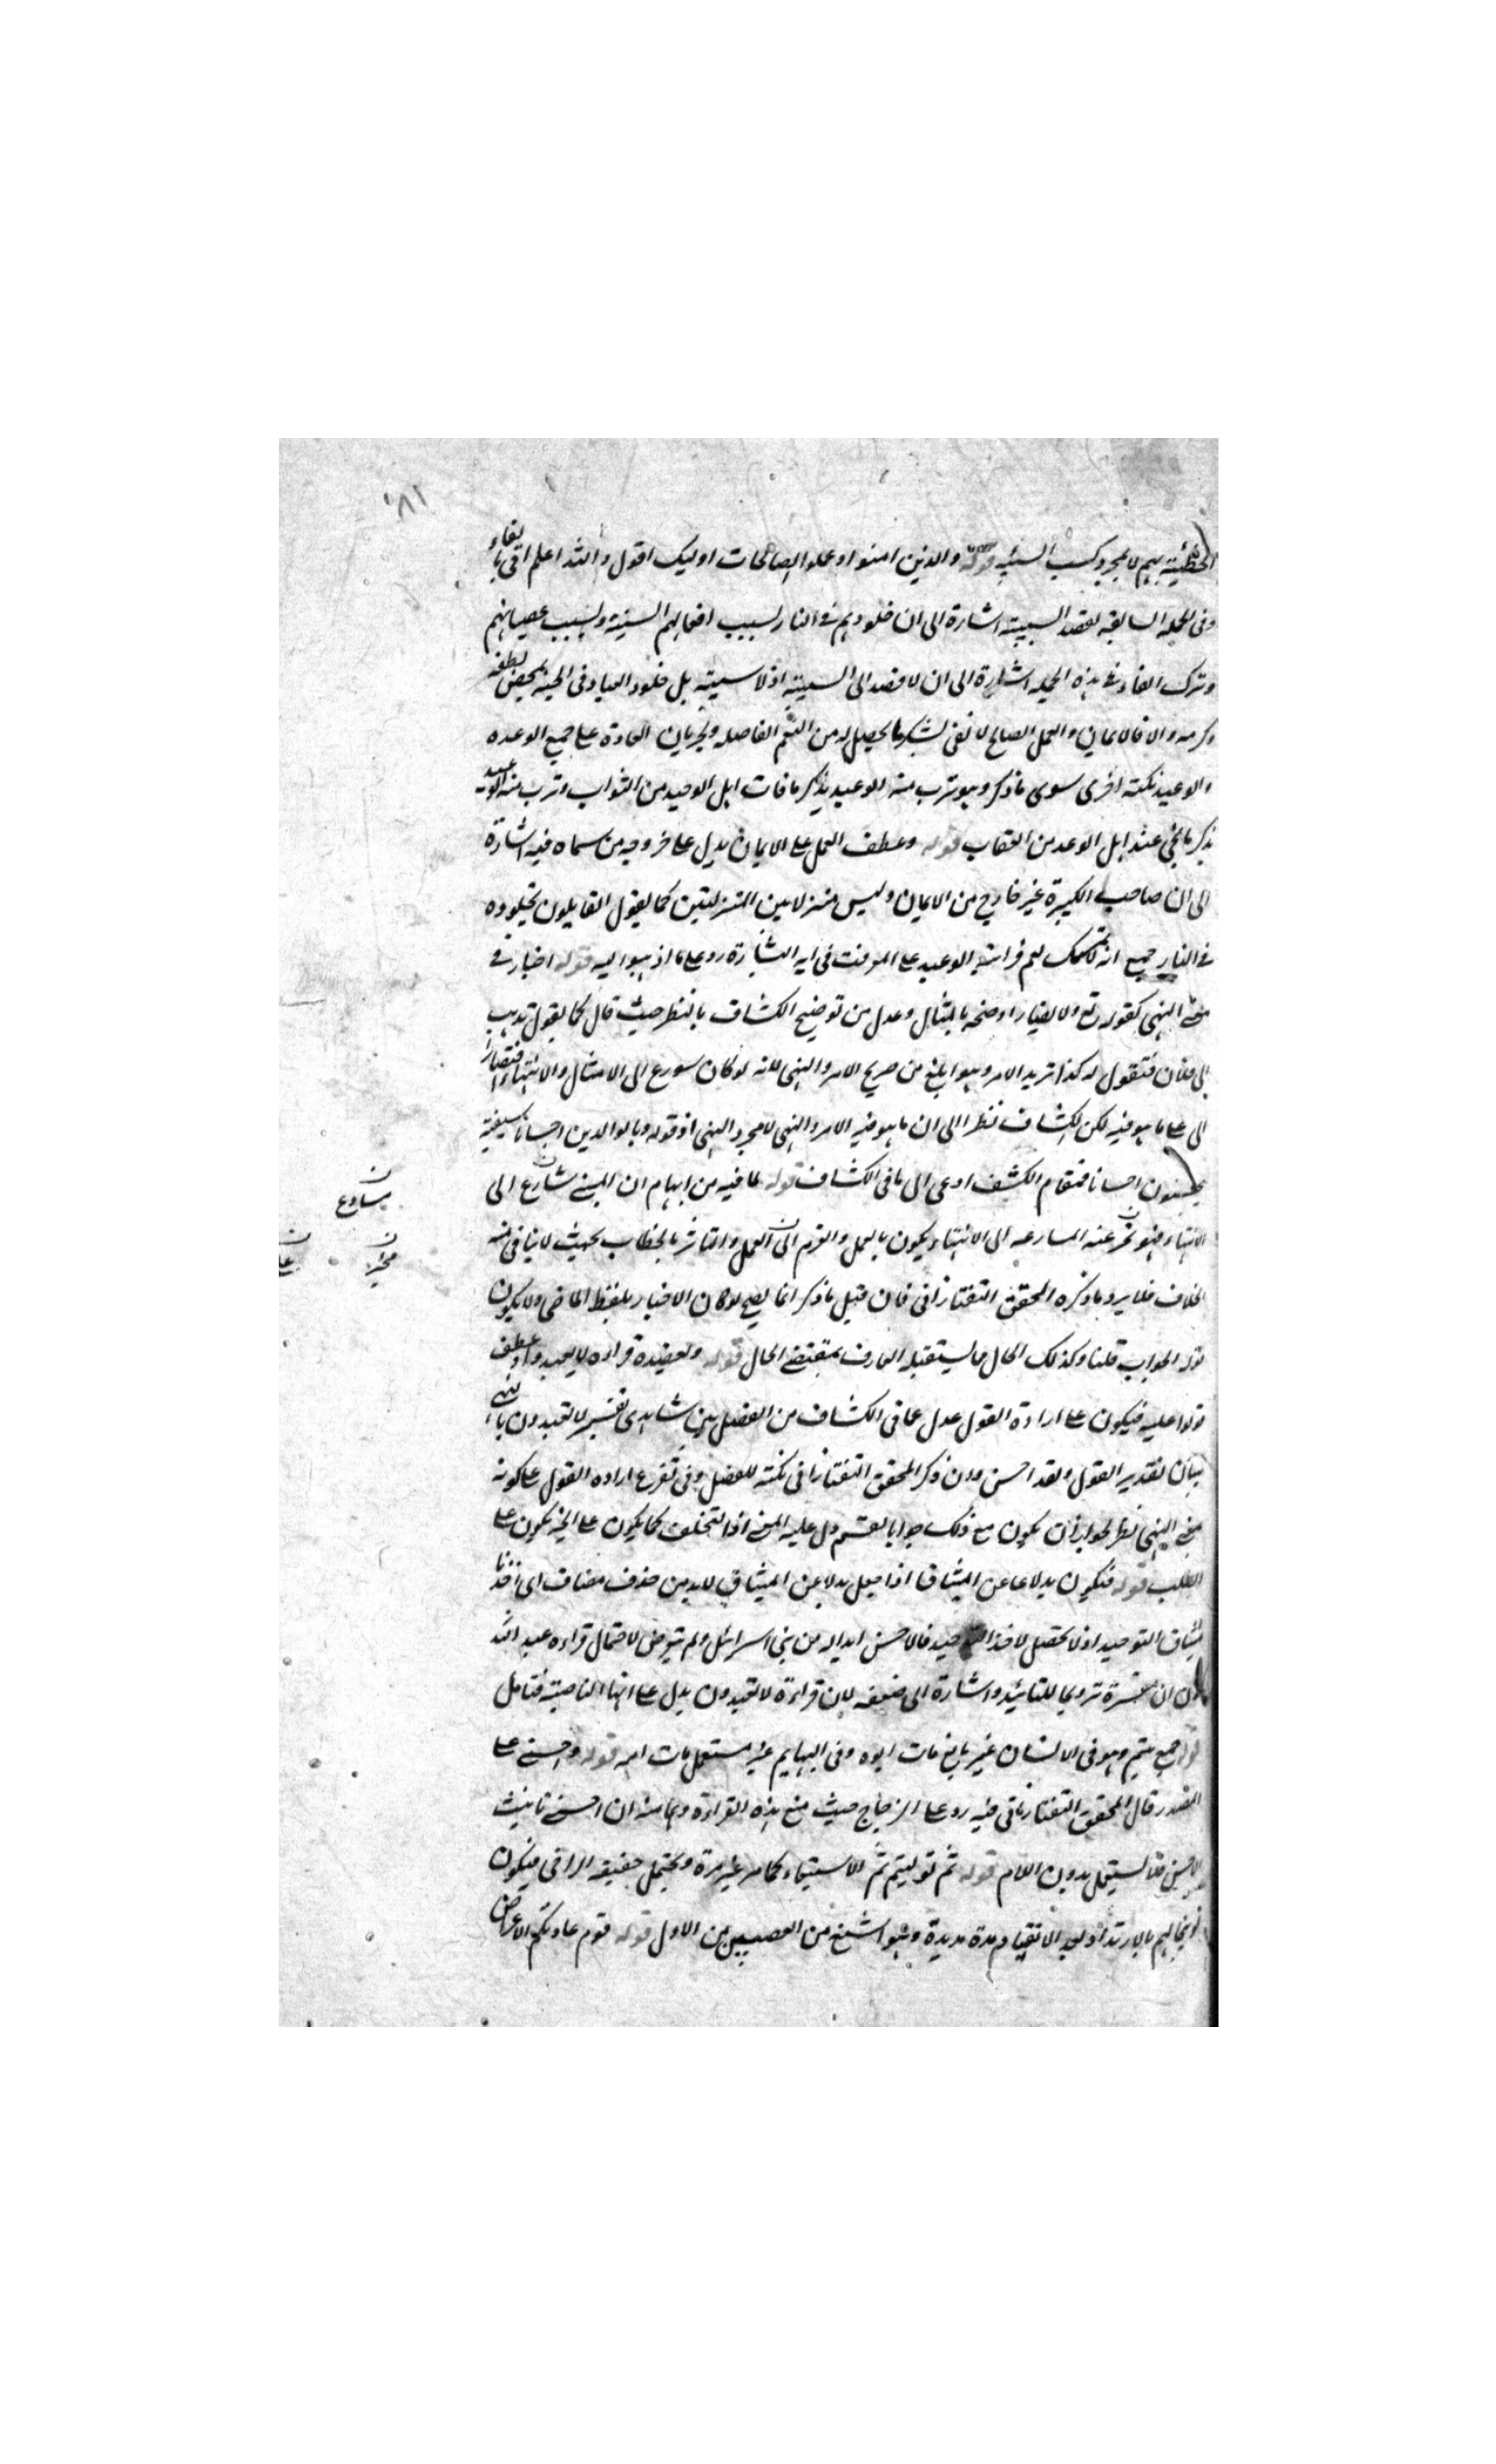 ١٨١
الخطيئة بهم لا بمجرد كسب السيئة قوله والذين امنوا وعملوا الصالحات اوليك اقول والله اعلم اتى بالفاء
وفى الجملة السابقة لقصد السببية اشارة الى ان خلودهم فى النار بسبب افعالهم السيئة وبسبب عصيانهم
وترك الفاء فى هذه الجملة اشارة الى ان لا قصد الى السببية اذ لا سببية بل خلود العباد فى الجنة بمحض لطفه
وكرمه والا فالايمان والعمل الصالح لا تفى بشكر ما يحصل له من النعم الفاصله وبجريان العادة على جميع الوعده
والوعيد نكتة اخرى سوى ما ذكر وهو ترب منه للوعيد يذكر ما فات اهل الوعيد من الثواب وترب منه الوعيد
بذكر ما نجى عنه اهل الوعد من العقاب قوله وعطف العمل على الايمان يدل على خروجه من سماه فيه اشارة
الى ان صاحب الكبيرة غير خارج من الايمان وليس منزلا بين المنزلتين كما يقول القايلون بخلوده
فى النار جميع انه لا تمسك لهم فى اية الوعيد على المؤمنت فى اية البشارة رد على ما ذهبوا اليه قوله اخبار فى
معنى النهى كقوله تع ولا يضار اوضحه بالمثال وعدل من توضيح الكشاف بالنظر حيث قال كما يقول تذهب
الى فلان فتقول له كذا تريد الامر وهو ابلغ من صريح الامر والنهى لانه لو كان سورع الى الامتثال والانتهاء
الى على ما هو فيه لكن الكشاف نظر الى ان ما هو فيه الامر والنهى لا مجرد النهى اذ قوله وبالوالدين احسانا
يحسنون احسانا فمقام الكشف ادعى الى ما فى الكشاف قوله لما فيه من ايهام ان المنهى شارع الى
يسارع
الانتهاء فهو يخبر عنه المسارعه الى الانتهاء يكون بالعمل والعزم الى العمل والتاثر بالخطاب بحيث لا ينافى منه
مخبر
الخلاف فلا يرد ما ذكره المحقق التفتازانى فان قيل ما ذكر انما يصح لو كان الاخبار بلفظ الماضى ولا يكون
قوله الجواب قلنا وكذلك الحال فما يستقبله العارف بمقتضى الحال قوله ويعضده قراءة لا يعبدوا وعطف
قولوا عليه فيكون على ارادة القول عدل عما فى الكشاف من الفصل بين شاهدى تفسير لا تعبدون بالنهى
ببيان تقدير القول ولقد احسن وان ذكر المحقق التفتازانى نكتة للفصل وفى تفرع ارادة القول على كونه
معنى النهى نظر لجواز ان يكون مع ذلك جوابا لقسم دل عليه المعنى اذ التحلف كما يكون على الخبر يكون على
الطلب قوله فيكون بدلا عن الميثاق اذا جعل بدلا عن الميثاق لا بد من حذف مضاف اى اخذنا
ميثاق التوحيد اذ لا يحصل لاخذ التوحيد فالاحسن ابداله من بنى اسرائل ولم يتعرض لاحتمال قراءة عبد الله
كون ان مفسرة ترويجا للتائيد واشارة الى ضعفه لان قراءة لا تعبدون يدل على انها الناصبة فتامل
قوله جمع يتيم وهو فى الانسان غير بالغ مات ابوه وفى البهايم غير مستعمل مات امه قوله وحسنى على
المصدر قال المحقق التفتازانى فيه رد على الزجاج حيث منع هذه القراءة وهما منه ان الحسنى تانيث
الاحسن فلا يستعمل بدون اللام قوله ثم توليتم ثم الاستبعاد كما مر غير مرة ويحتمل حقيقة التراخى فيكون
توبيخا لهم بالارتداد بعد الانقياد مدة مديدة وهو اشنع من العصيين من الاول قوله قوم عادتكم الاعراض